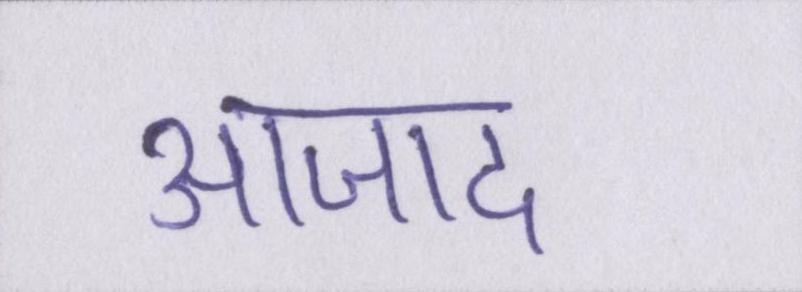 आजाद